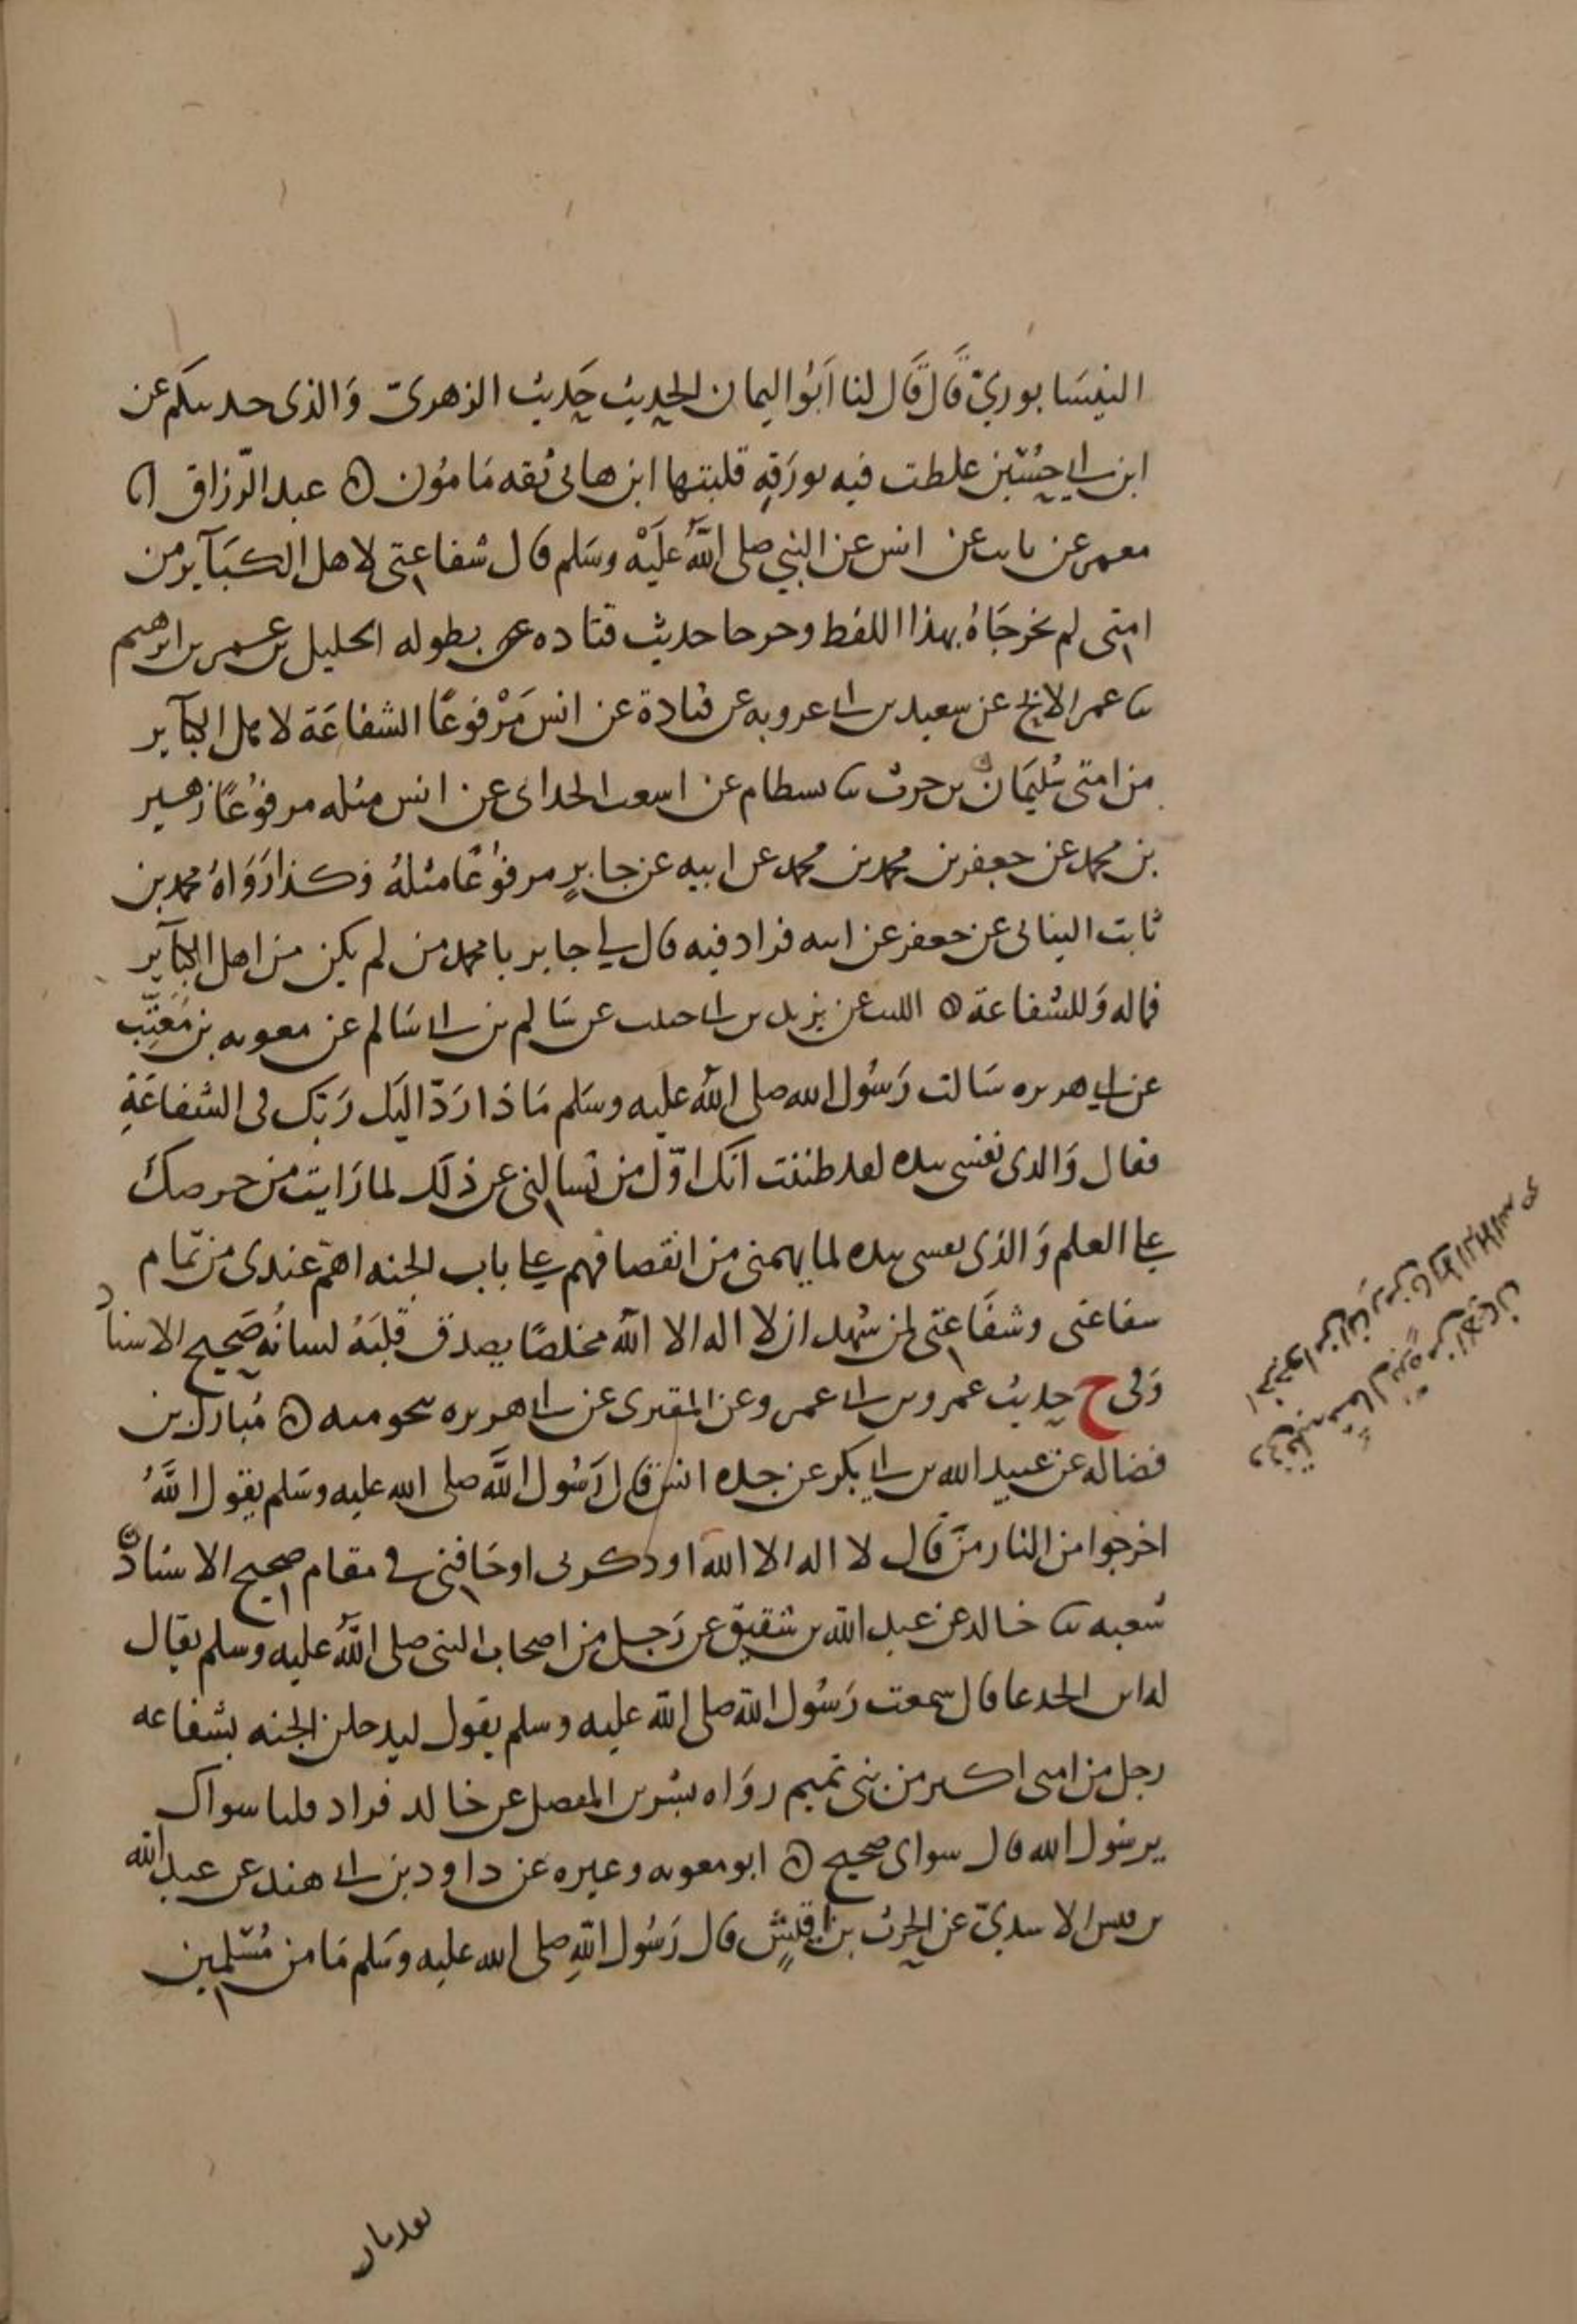 النيسَابوريّ قَال قَال لنا اَبُو اليمان الحديث حَديث الزهريّ وَالذى حدىىكم عن
ابن ابي حُسَين غلطت فيه بورَقهٍ قلبتها ابن هانى ثقه مَامُون ه عبد الرّزاق انا
معمر عن ثابت عن انس عن النبي صلى اللّه عَليْه وسَلم قال شفاعتى لاهل الكبَآير من
امتى لم يخرجَاهُ بهذا اللفط وخرحا حديث قتاده عن بطوله الخليل بن عمر بن ابرهيم
ثنا عمر الابح عن سعيد بن ابى عروبه عن قتادة عن انس مَرْفوعًا الشفاعَة لاهل الكبآير
من امتى سُليمَان بن حرب ثنا بسطام عن اسعث الحدانى عن انس مثله مرفوُعًا زهير
بن محمد عن جعفر بن محمد بن محمد عن ابيه عن جابرٍ مرفوُعًا مثلهُ وكذا رَوَاهُ محمد بن
ثابت البنانى عن جعفر عن ابيه فزاد فيه قال لي جابر يا محمد من لم يكن من اهل الكبآير
فما له وَللشفاعة ه الليث عن يزيد بن ابى حبيب عن سَالم بن ابى سَالم عن معويه بن مُعَتِّب
عن ابي هريره سَالت رَسُول الله صلى اللّه عليه وسَلم مَاذا رَدّ اليَك رَبّك فى الشفاعَةِ
فقال وَالدى نفسى بيده لقد ظننت انّك اوّل من تسالنى عن ذلَك لما رَايت من حرصكَ
على العلم وَالذى نفسى بيده لما يهمنى من انقصافهم على باب الجنه اهمّ عندى من تمَام
سفاعتى وشفَاعتى لمن شهد ان لا اله الا اللّه مخلصًا يصدق قلبَهُ لسانُه صَحيح الاسناد
وَفى خ حديث عمرو بن ابى عمرو عن المقبرى عن ابى هريره نحو منه ه مُبارك بن
فضاله عن عبيد الله بن ابى بكر عن جده انس قال رَسُول اللَّه صلى الله عليه وسَلم يقول اللَّهُ
اخرجوا من النار مَن قال لا اله الا اللّه او ذكرنى او خَافنى فى مقام صحيح الاسنادّ
شعبه ثنا خالد عن عبد اللّه بن شقيق عن رَجل من اصحاب النبى صلى اللّه عليه وسلم يقال
له ابن الجدعا قال سمعت رَسُول اللّه صلى اللّه عليه وسلم يقول ليدخلن الجنه بشفاعه
رجل من امتى اكثر من بنى تميم روَاه بشر بن المفضل عن خالد فزاد قلنا سواك
يرسُول الله قال سواى صحيح ه ابو معويه وغيره عن داود بن ابى هند عن عبد اللّه
بن قيس الاسديّ عن الحرث بن اقيشٍ قال رَسُول اللّهِ صلى الله عليه وسَلم مَا من مُسْلمين
اخرجوا من النار من قال لا اله الا الله
وفى قلبه مثقال ذره من الايمان